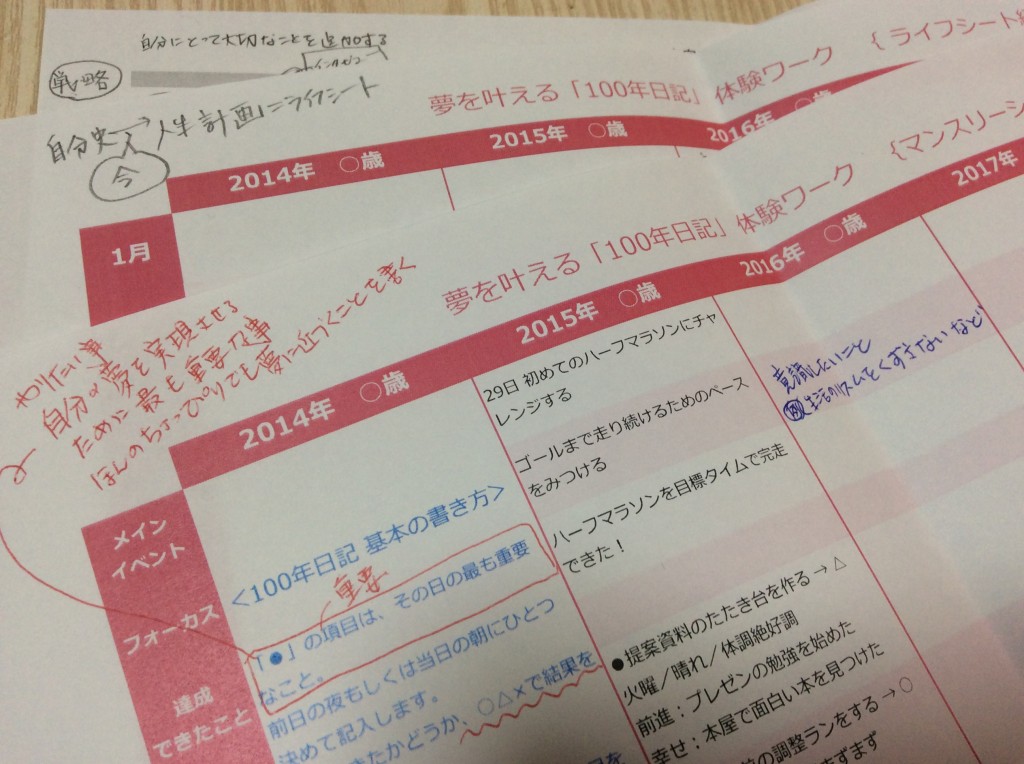 自分にとって大切なことを追加する
戦略
自分史→人生計画にライフシート
今
夢を叶える「100年日記」体験ワーク {ライフシート
2014年 〇歳
2015年 〇歳
2016年 〇歳
1月
夢を叶える「100年日記」体験ワーク {マンスリーシ
2014年 〇歳
2015年 〇歳
2016年 〇歳
2017年
やりたい事
自分の夢を実現させる
ために最も重要な事
ほんのちょっぴりでも夢に近づくことを書く
メイン
イベント
フォーカス
達成
できたこと
<100年日記 基本の書き方>
重要
「●」の項目は、その日の最も重要
なこと。
前日の夜もしくは当日の朝にひとつ
決めて記入します。
きたかどうか、〇△×で結果を
29日 初めてのハーフマラソンにチャ
レンジする
ゴールまで走り続けるためのペース
をみつける
ハーフマラソンを目標タイムで完走
できた!
●提案資料のたたき台を作る→△
火曜/晴れ/体調絶好調
前進:プレゼンの勉強を始めた
幸せ:本屋で面白い本を見つけた
の調整ランをする→〇
まずまず
意識したいこと
例 生活リズムをくずさないなど